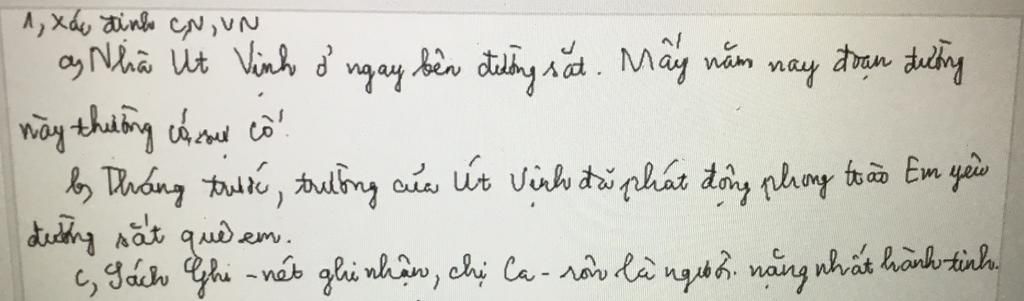 1, Xác định CN, VN
a, Nhà Út Vịnh ở ngay bên đường sắt. Mấy năm nay đoạn đường
này thường có sự cố.
b, Tháng trước, trường của Út Vịnh đã phát động phong trào Em yêu
đường sắt quê em.
c, Sách Ghi-nét ghi nhận, chị Ca-rôn là người nặng nhất hành tinh.